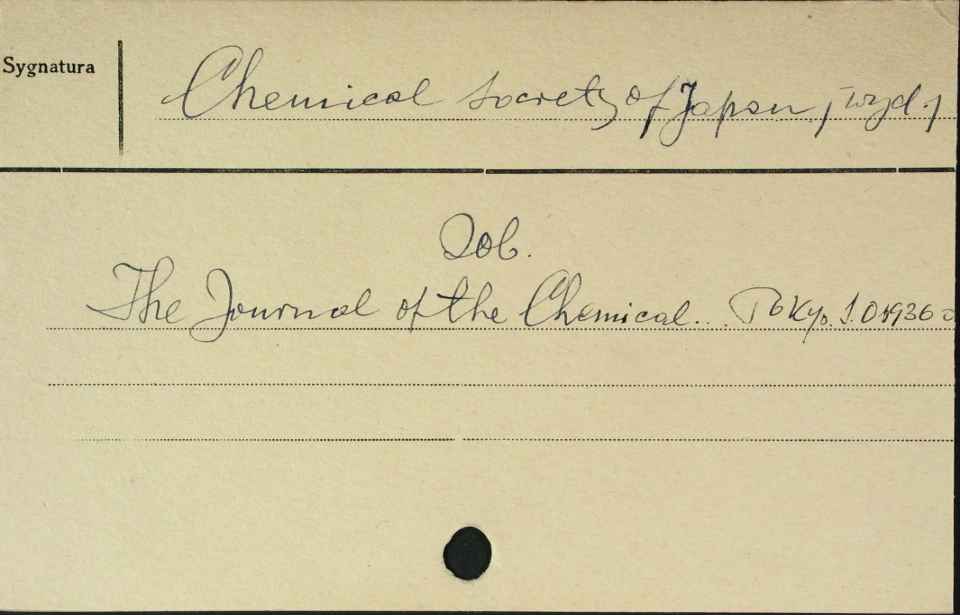 Sygnatura
Chemical Society of Japan, /wyd./
Zob.
The Journal of the Chemical.. Tokyo.